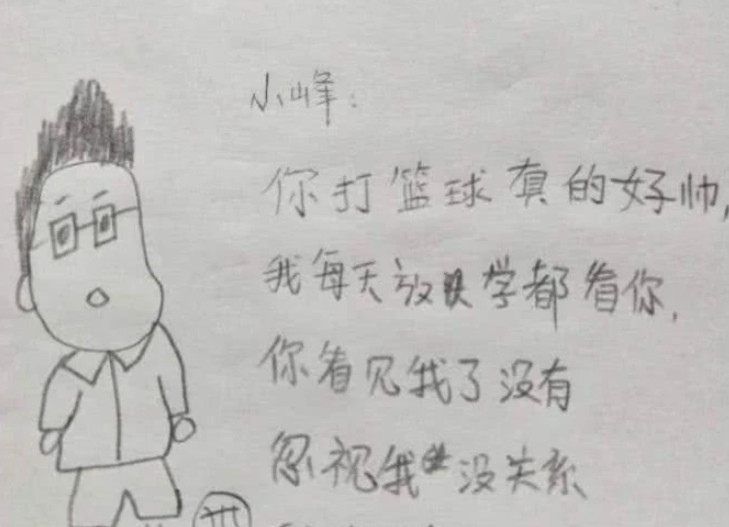 小峰:
你打篮球真的好帅,
我每天放学都看你,
你看见我了没有
忽视我没关系